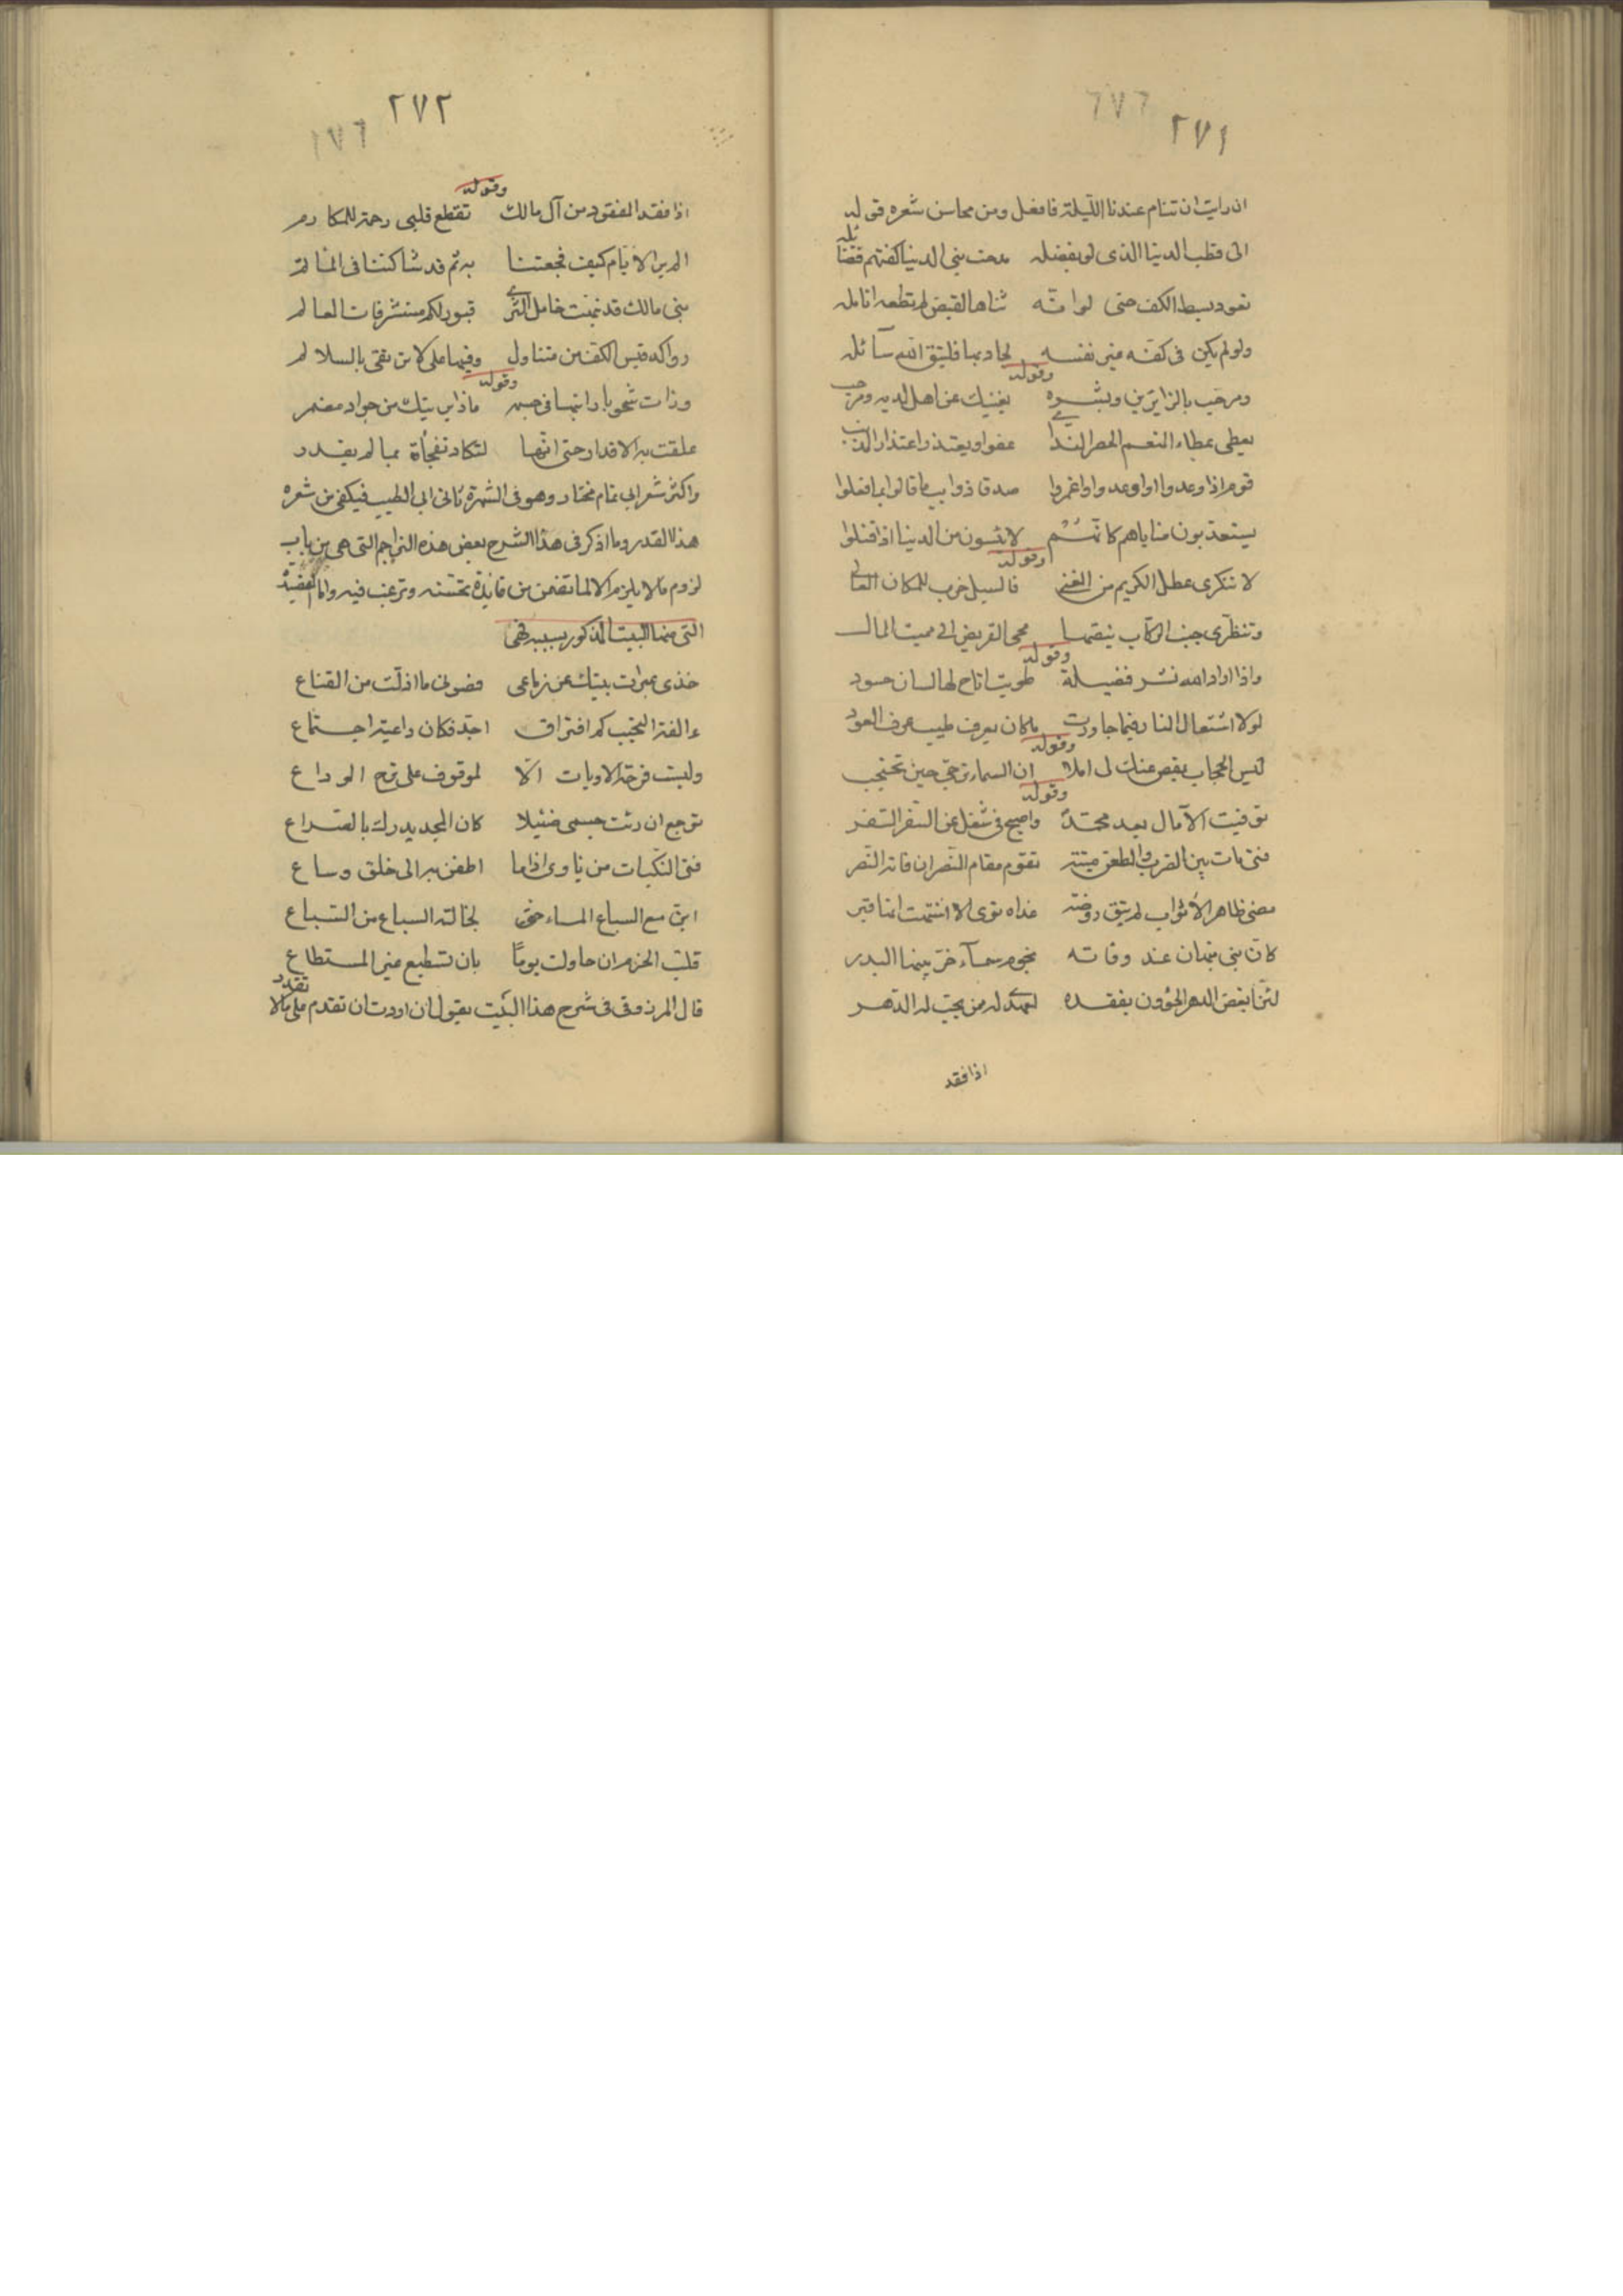 ٢٧١
٦٧٦
ان رايت ان تنام عندنا الليلة فافعل ومن محاسن شعره قوله
الى قطب الدنيا الذى لو بفضله مدحت بنى الدنيا كفتهم فضائله
تعود بسط الكف حتى لو انّه ثناها لقبض لم تطعه انامله
ولو لم يكن فى كفّه غير نفسه لجاد بها فليتق الله سآئله
وقوله
ومرحّب بالزايرين وبشره يغنيك عن اهل لديه ومرحب
يعطى عطاء المنعم الحصر الندى عفوا ويعتذر اعتذار المذنب
قوم اذا وعدوا او اوعدوا غمروا صدقا ذوايب ما قالوا بما فعلوا
يستعذبون مناياهم كانّهُمْ لا ييئسون من الدنيا اذا قتلوا
وقوله
لا تنكرى عطل الكريم من الغنى فالسيل حرب للمكان العالى
وتنظّرى خبب الركاب ينصّها محيى القريض الى مميت المال
وقوله
واذا اراد الله نشر فضيلة طويت اتاح لها لسان حسود
لولا اشتعال النار فيما جاورت ما كان يعرف طيب عرف العود
وقوله
ليس الحجاب بمقص عنك لى املا ان السماء ترجّى حين تحتجب
وقوله
توفيت الآمال بعد محمّد واصبح فى شغل عن السّفر السّفر
فتى مات بين الضرب والطعن ميتة تقوم مقام النّصر ان فاته النّصر
مضى طاهر الأثواب لم تبق روضة غداه ثوى الا اشتهت انها قبر
كانّ بنى نبهان عند وفاته نجوم سمآء خرّ بينها البدر
لئن ابغض الدهر الخؤون بفقده لعهدى له ممن يحبّ له الدّهر
اذا فقد
٢٧٢
١٧٦
وقوله
اذا فقد المفقود من آل مالك تقطع قلبى رحمة للمكارم
الم ير الايّام كيف فجعتنا به ثم قد شاكتنا فى المآتم
بنى مالك قد نبّهت خامل الثرى قبور لكم مستشرفات المعالم
رواكد قيس الكف من متناول وفيها على لا ترتقى بالسلالم
وقوله
علقت به الاقدار حتى انّها لتكاد تفجأه بما لم يقدر
واكثر شعر ابى تمام مختار وهو فى الشهرة ثانى ابى الطيب فيكفى من شعره
هذا القدر وما اذكر فى هذا الشرح بعض هذه التراجم التى هى من باب
لزوم ما لا يلزم الا لما تضمن من فايدة تحسّنه وترغب فيه واما القصيدة
التى منها البيت المذكور بسببه فهى
خذى عبرات بينك عن زماعى فصونى ما اذلّت من القناع
ءالفة النحيب كم افتراق اجدّ فكان داعية اجتماع
وليست فرحة الاوبات الّا لموقوف على ترح الوداع
توجع ان رئت جسمى ضئيلا كان المجد يدرك بالصراع
فتى النّكبات من ياوى اذا ما اطفن به الى خلق وساع
ابن مع السباع الماء حتّى لخالته السباع من السّباع
قلّب الحزم ان حاولت يومًا بان تستطيع غير المستطاع
قال المرزوقى فى شرح هذا البَيت يقول ان اردت ان تقدم على ما لا تقدر